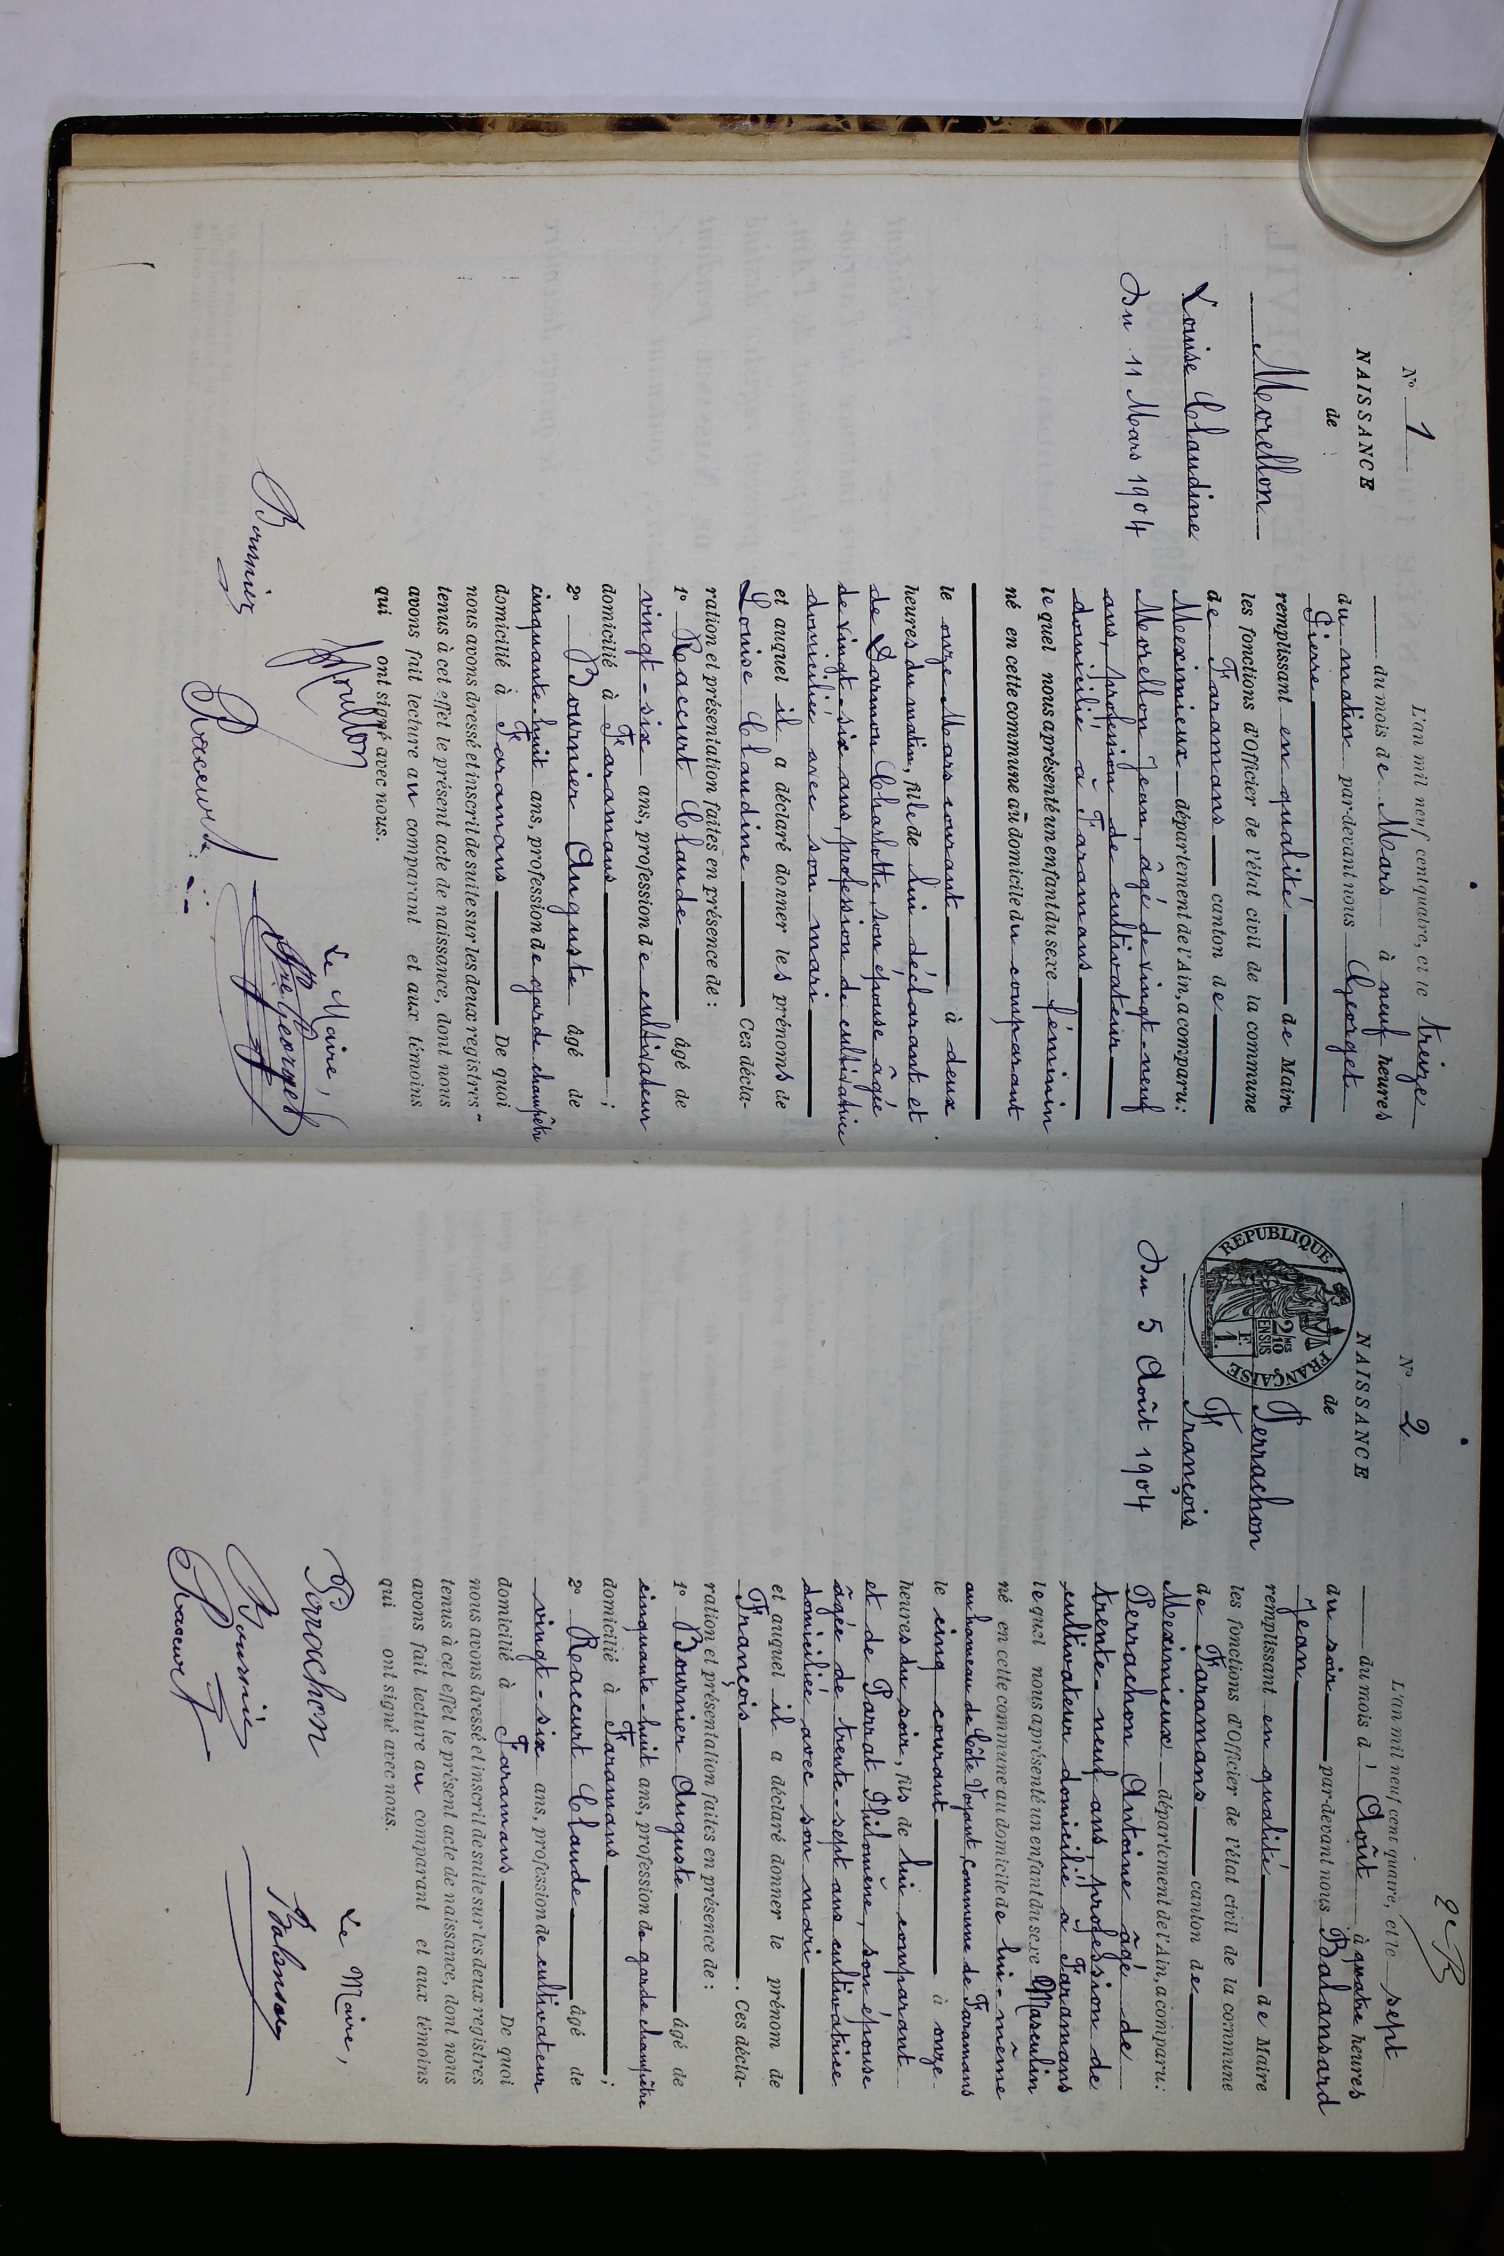 N° 1
NAISSANCE
de
Morellon
Louise Claudine
Du 11 Mars 1904
L'an mil neuf cent quatre, et le treize
du mois de Mars à neuf heures
du matin par-devant nous Georget
Pierre
remplissant en qualité de Maire
les fonctions d'Officier de l'état civil de la commune
de Faramans canton de
Meximieux département de l'Ain, a comparu:
Morellon Jean, âgé de vingt-neuf
ans, profession de cultivateur
domicilié à Faramans
lequel nous a présenté un enfant du sexe féminin
né en cette commune au domicile du comparant
le onze Mars courant à deux
heures du matin, fille de lui déclarant et
de Darmon Charlotte, son épouse âgée
de vingt-six ans, profession de cultivatrice
domiciliée avec son mari
et auquel il a déclaré donner les prénoms de
Louise Claudine Ces décla-
ration et présentation faites en présence de :
1° Raccurt Claude âgé de
vingt-six ans, profession de cultivateur
domicilié à Faramans ;
2° Bournier Auguste âgé de
cinquante-huit ans, profession de garde champêtre
domicilié à Faramans De quoi
nous avons dressé et inscrit de suite sur les deux registres
tenus à cet effet le présent acte de naissance, dont nous
avons fait lecture au comparant et aux témoins
qui ont signé avec nous.
Morellon
Le Maire,
Bournier
Pre Georget
Raccurt
2
N° 2
NAISSANCE
de
REPUBLIQUE FRANÇAISE
2/10 EN SUS
1 F.
Perrachon
F
François
Du 5 Août 1904
L'an mil neuf cent quatre, et le sept
du mois d'Août à quatre heures
du soir par-devant nous Balansard
Jean
remplissant en qualité de Maire
les fonctions d'Officier de l'état civil de la commune
de Faramans canton de
Meximieux département de l'Ain, a comparu:
Perrachon Antoine âgé de
trente-neuf ans, profession de
cultivateur domicilié à Faramans
lequel nous a présenté un enfant du sexe Masculin
né en cette commune au domicile de lui-même
au hameau de Côte Voyant, commune de Faramans
le cinq courant à onze
heures du soir, fils de lui comparant
et de Parrat Philomène, son épouse
âgée de trente-sept ans cultivatrice
domiciliée avec son mari
et auquel il a déclaré donner le prénom de
François . Ces décla-
ration et présentation faites en présence de :
1° Bournier Auguste âgé de
cinquante-huit ans, profession de garde champêtre
domicilié à Faramans ;
2° Raccurt Claude âgé de
vingt-six ans, profession de cultivateur
domicilié à Faramans De quoi
nous avons dressé et inscrit de suite sur les deux registres
tenus à cet effet le présent acte de naissance, dont nous
avons fait lecture au comparant et aux témoins
qui ont signé avec nous.
Perrachon
Le Maire,
Bournier
Balansard
Raccurt